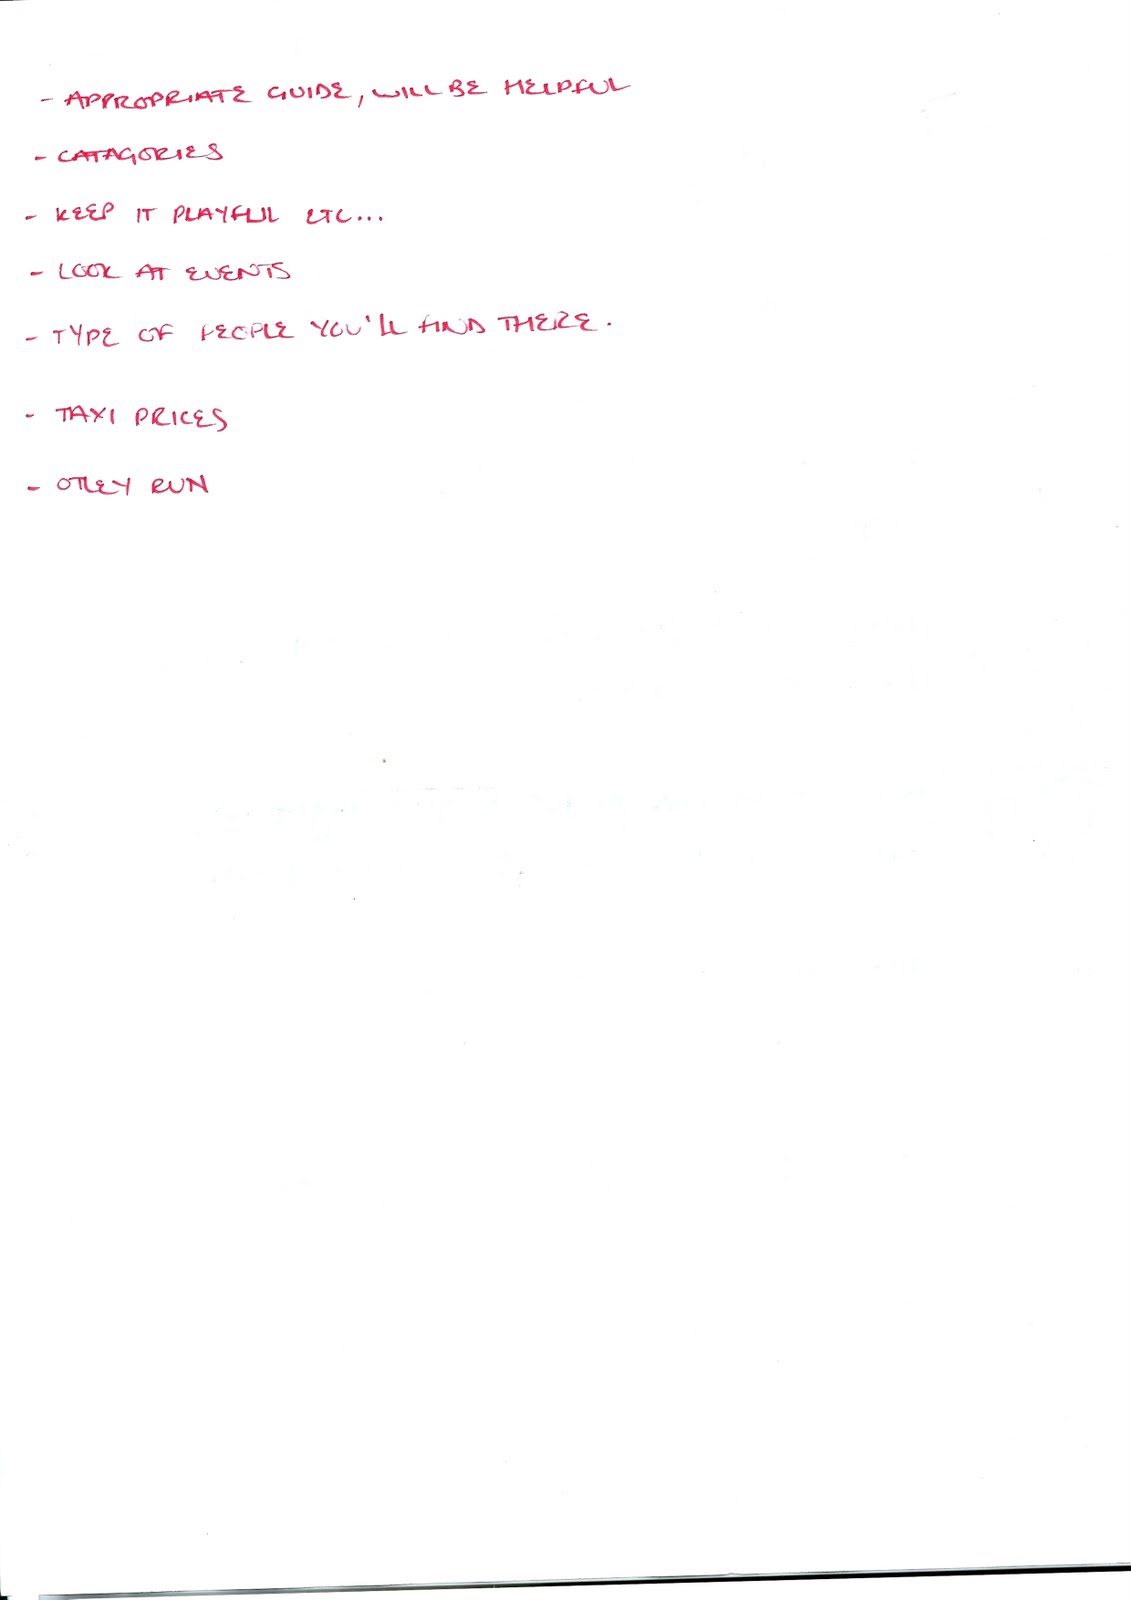 - APPROPRIATE GUIDE, WILL BE HELPFUL
- CATAGORIES
- KEEP IT PLAYFUL ETC...
- LOOK AT EVENTS
- TYPE OF PEOPLE YOU'll FIND THERE.
- TAXI PRICES
- OTLEY RUN